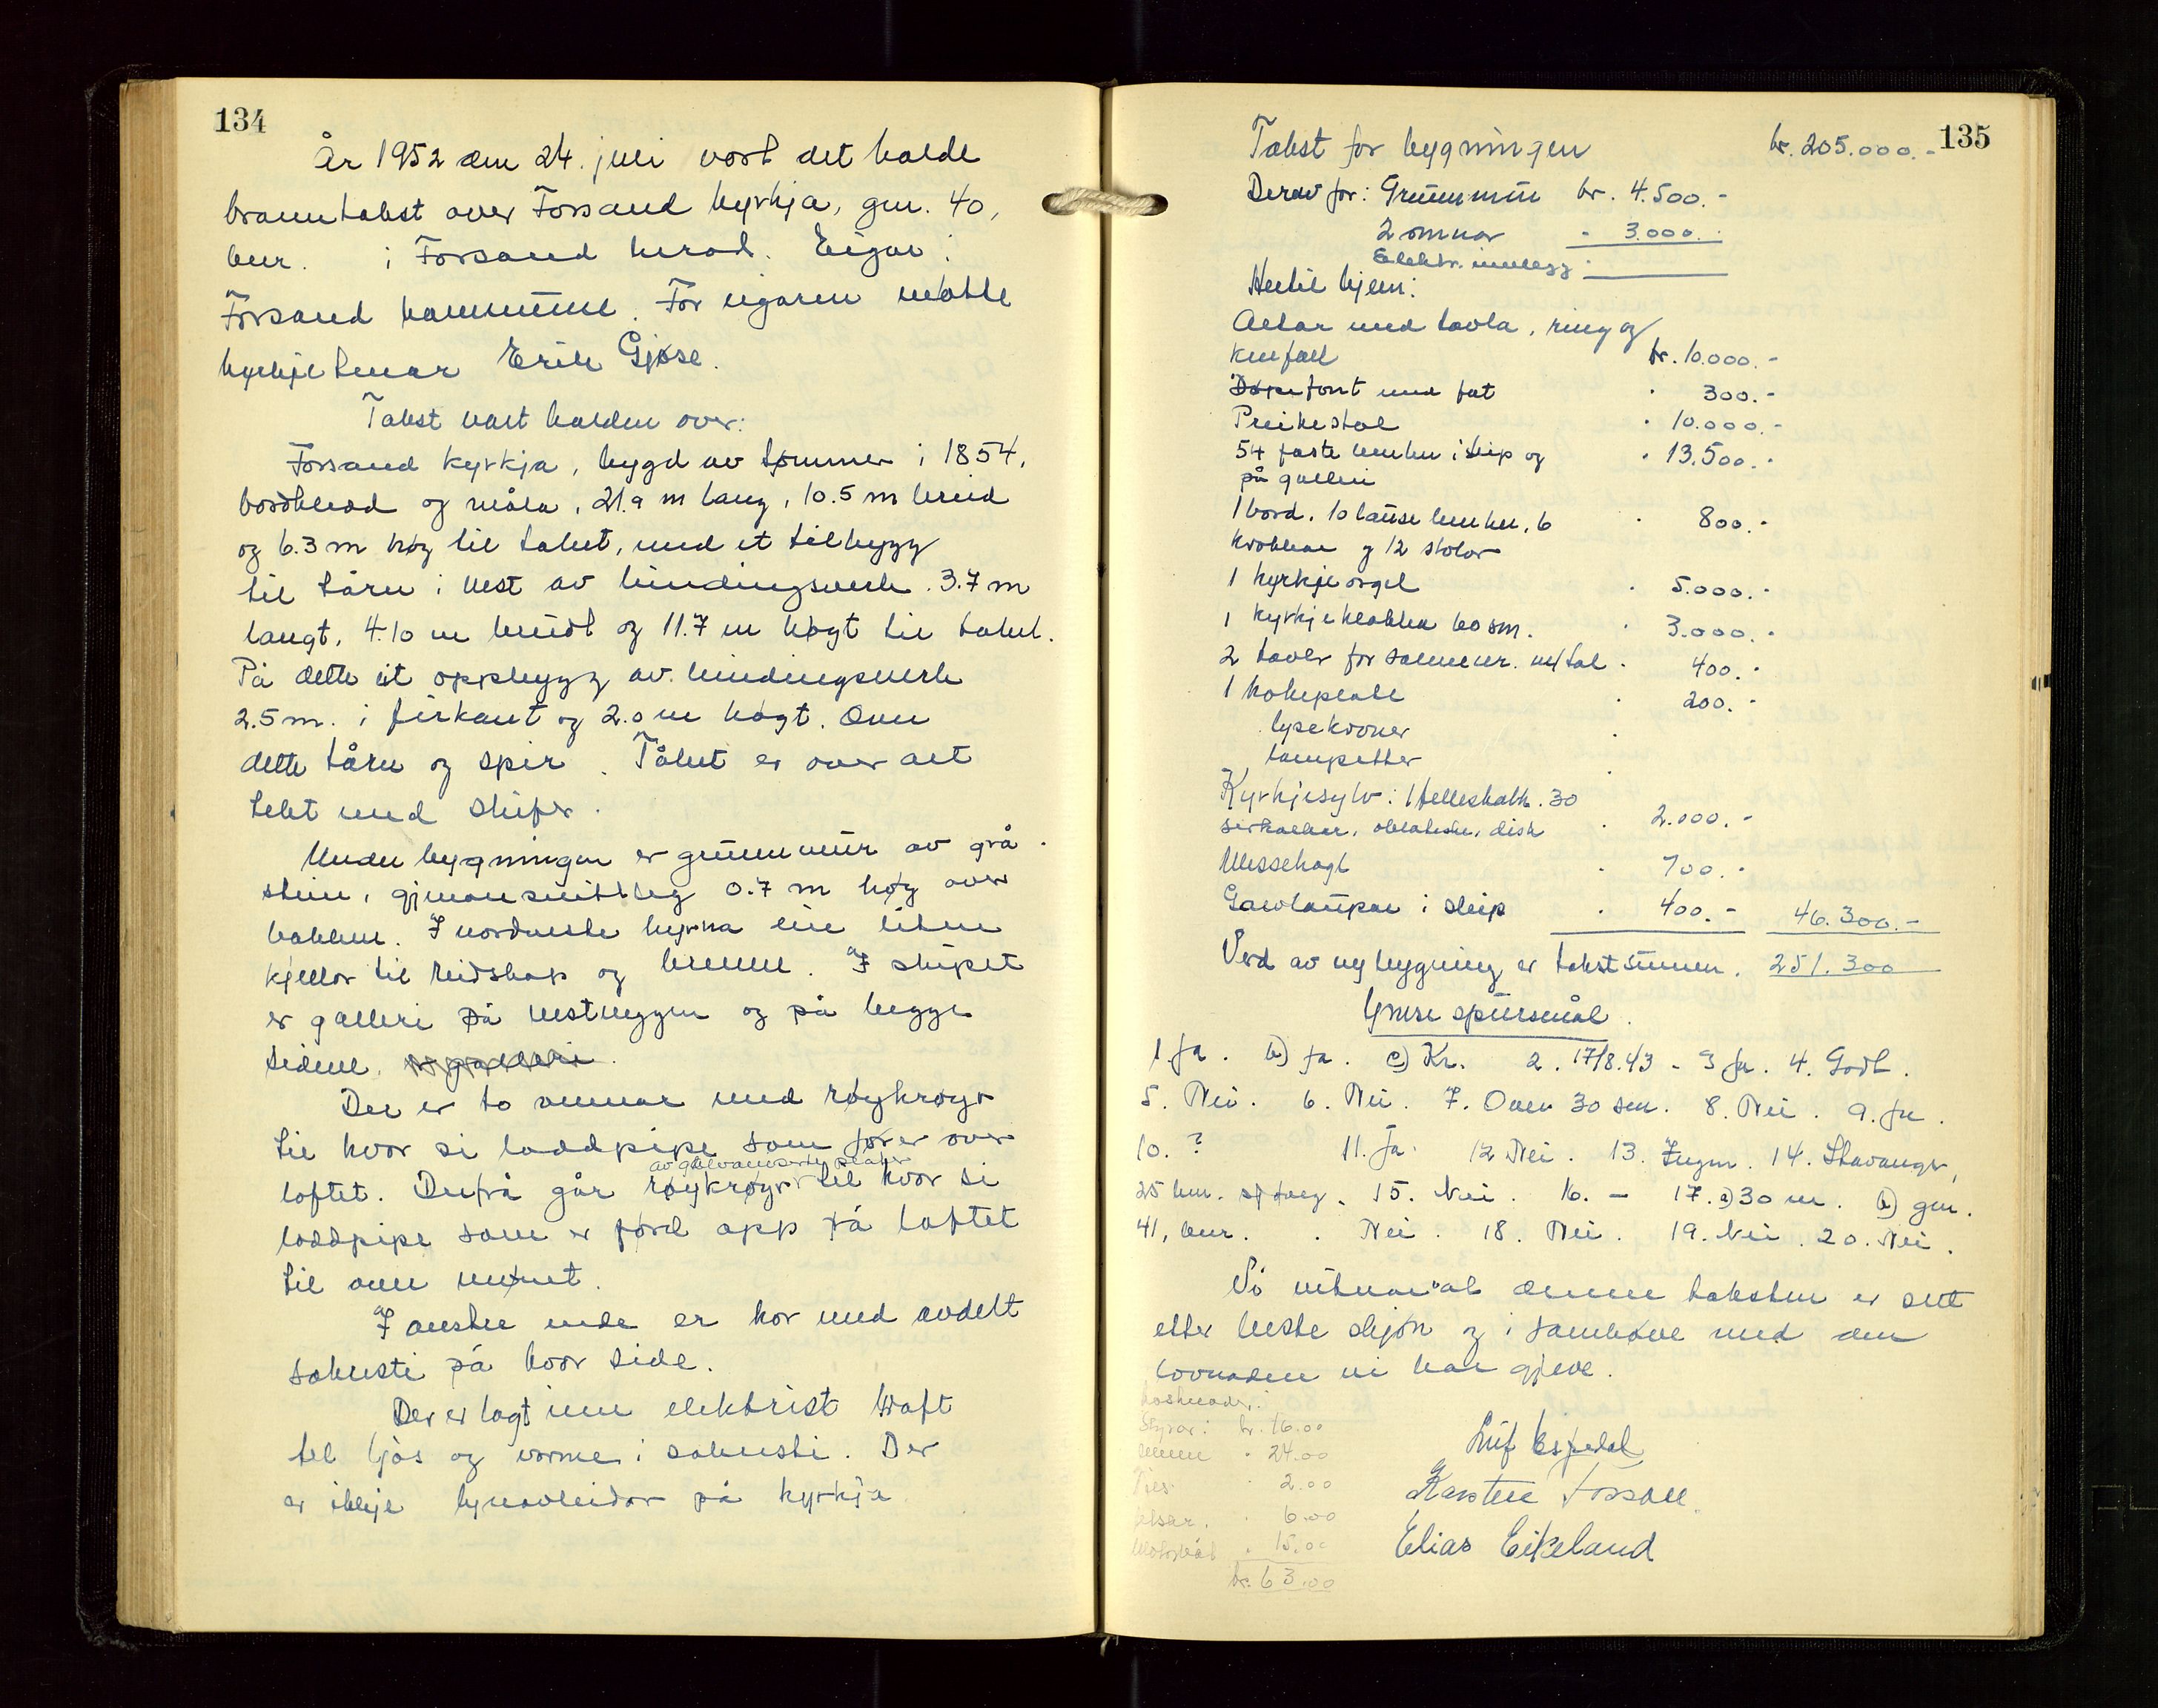 134
År 1952 den 24. juli vart det halde
branntakst over Forsand kyrkja, gnr. 40,
bnr. i Forsand herad. Eigar:
Forsand kommune. For eigaren møtte
kyrkjetenar Erik Gjøse.
Takst vart halden over:
Forsand kyrkja, bygd av tømmer i 1854,
bordkledd og måla, 21.9 m lang, 10.5 m breid
og 6.3 m høg til taket, med et tilbygg
til tårn i vest av bindingsverk. 3.7 m
langt, 4.10 m breidt og 11.7 m høgt til taket.
På dette eit oppbygg av bindingsverk
2.5 m. i firkant og 2.0 m høgt. Over
dette tårn og spir. Tåket er over alt
tekt med skifer.
Under bygningen er grunnmur av grå-
stein, gjenomsnittleg 0.7 m høg over
bakken. I nordveste hyrna ein liten
kjellar til reidskap og brenne. I skipet
er galleri på vestveggen og på begge
sidene. og galleri.
Der er to omnar med røykrøyr
til kvar si loddpipe som fører over
av galvaniserte plater
loftet. Derfrå går røykrøyr til kvar si
loddpipe som er ført opp frå loftet
til over mønet.
I austre ende er kor med avdelt
sakristi på kvar side.
Der er lagt inn elektrisk kraft
til ljos og varme i sakristi. Der
er ikkje lynavleidar på kyrkja
135
Takst for bygningen kr. 205.000.-
Derav for: Grunnmur kr. 4.500.-
2 omnar " 3.000.-
Elektr. innlegg "
Hertil kjem:
Altar med tavla, ring og
knefall kr. 10.000.-
Døpefont med fat " 300.-
Preikestol " 10.000.-
54 faste benker i skip og " 13.500.-
på galleri
1 bord, 10 lause benker, 6 " 800.-
krakkar og 12 stolar
1 kyrkjeorgel " 5.000.-
1 kyrkjeklokke 60 sm. " 3.000.-
2 tavler for salmenr. m/tal " 400.-
1 kokeplate " 200.-
lysekroner "
lampetter
Kyrkjesylv: 1 felleskalk. 30
serkalker, oblateske, disk " 2.000.-
Messehagl " 700.-
Golvlauper i skip " 400.- 46.300.-
Verd av nybygning er takstsumen. 251.300
Ymse spursmål.
1 Ja. b) Ja. c) Kr. 2. 17/8.43 - 3 Ja. 4. Godt.
5. Nei. 6. Nei. 7. Over 30 sm. 8. Nei. 9. Ja.
10. ? 11. Ja. 12 Nei. 13. Ingen. 14. Stavanger,
25 km. sjøveg. 15. Nei. 16. - 17. a) 30 m. b) gnr.
41, bnr. . Nei. 18. Nei. 19. Nei. 20. Nei.
Vi vitnar at denne taksten er sett
etter beste skjøn og i samhøve med den
lovnaden vi har gjeve.
Kostnader:
Styrar: kr. 16.00
Menn " 24.00
" 2.00
" 6.00
" 15.00
kr. 63.00
Leif Espedal
Karsten Fossan
Elias Eikeland